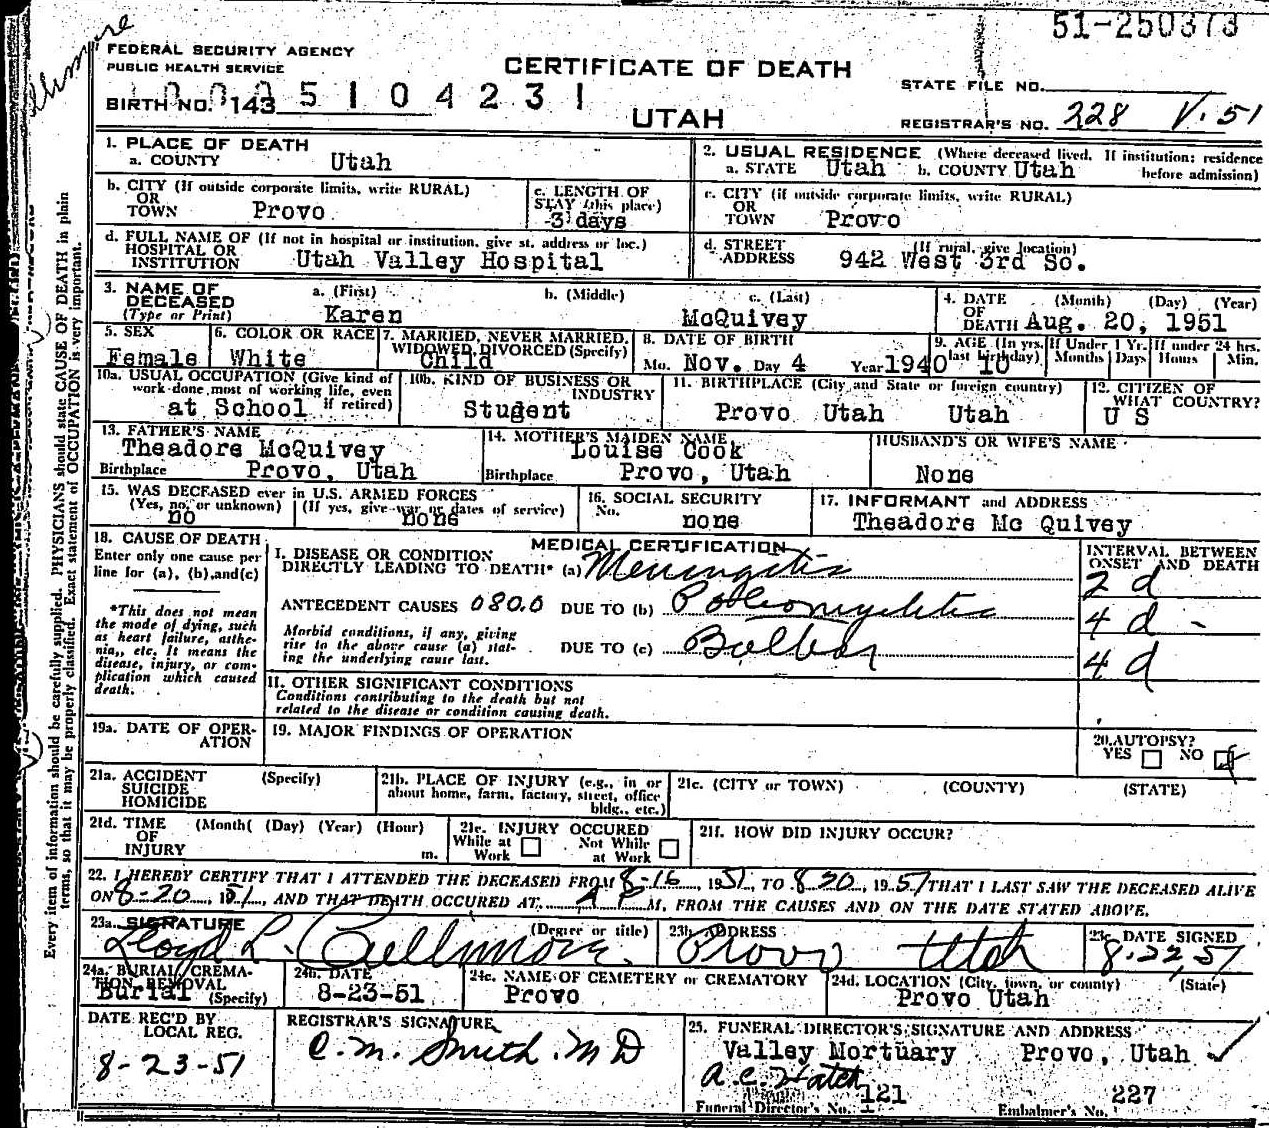 51-250373
FEDERAL SECURITY AGENCY
PUBLIC HEALTH SERVICE
CERTIFICATE OF DEATH
UTAH
STATE FILE NO.
BIRTH NO. 143 5104231
REGISTRAR'S NO. 228 V. 51
1. PLACE OF DEATH
a. COUNTY Utah
2. USUAL RESIDENCE (Where deceased lived. If institution: residence before admission)
a. STATE Utah b. COUNTY Utah
b. CITY (If outside corporate limits, write RURAL)
OR
TOWN Provo
c. LENGTH OF
STAY (this place)
3 days
c. CITY (if outside corporate limits, write RURAL)
OR
TOWN Provo
d. FULL NAME OF (If not in hospital or institution, give st. address or loc.)
HOSPITAL OR
INSTITUTION Utah Valley Hospital
d. STREET (If rural, give location)
ADDRESS 942 West 3rd So.
3. NAME OF
DECEASED
(Type or Print)
a. (First) b. (Middle) c. (Last)
Karen McQuivey
4. DATE (Month) (Day) (Year)
OF
DEATH Aug. 20, 1951
5. SEX
Female
6. COLOR OR RACE
White
7. MARRIED, NEVER MARRIED,
WIDOWED DIVORCED (Specify)
Child
8. DATE OF BIRTH
Mo. Nov. Day 4 Year 1940
9. AGE (In yrs. last birthday) 10
If Under 1 Yr. Months Days
If under 24 hrs. Hours Min.
10a. USUAL OCCUPATION (Give kind of
work done most of working life, even
if retired)
at School
10b. KIND OF BUSINESS OR
INDUSTRY
Student
11. BIRTHPLACE (City and State or foreign country)
Provo Utah Utah
12. CITIZEN OF
WHAT COUNTRY?
U S
13. FATHER'S NAME
Theadore McQuivey
Birthplace Provo, Utah
14. MOTHER'S MAIDEN NAME
Louise Cook
Birthplace Provo, Utah
HUSBAND'S OR WIFE'S NAME
None
15. WAS DECEASED ever in U.S. ARMED FORCES
(Yes, no, or unknown) (If yes, give war or dates of service)
no none
16. SOCIAL SECURITY
No. none
17. INFORMANT and ADDRESS
Theadore Mc Quivey
18. CAUSE OF DEATH
Enter only one cause per
line for (a), (b), and (c)
*This does not mean
the mode of dying, such
as heart failure, asthe-
nia,, etc. It means the
disease, injury, or com-
plication which caused
death.
MEDICAL CERTIFICATION
I. DISEASE OR CONDITION
DIRECTLY LEADING TO DEATH* (a) Meningitis
INTERVAL BETWEEN
ONSET AND DEATH
2 d
ANTECEDENT CAUSES 080.0 DUE TO (b) Poliomyelitis
4 d -
Morbid conditions, if any, giving
rise to the above cause (a) stat-
ing the underlying cause last.
DUE TO (c) Bulbar
4 d
II. OTHER SIGNIFICANT CONDITIONS
Conditions contributing to the death but not
related to the disease or condition causing death.
19a. DATE OF OPER-
ATION
19. MAJOR FINDINGS OF OPERATION
20. AUTOPSY?
YES NO
21a. ACCIDENT (Specify)
SUICIDE
HOMICIDE
21b. PLACE OF INJURY (e.g., in or
about home, farm, factory, street, office
bldg., etc.)
21c. (CITY or TOWN) (COUNTY) (STATE)
21d. TIME (Month( (Day) (Year) (Hour)
OF
INJURY m.
21e. INJURY OCCURED
While at Work Not While at Work
21f. HOW DID INJURY OCCUR?
22. I HEREBY CERTIFY THAT I ATTENDED THE DECEASED FROM 8-16, 1951, TO 8 20, 1951 THAT I LAST SAW THE DECEASED ALIVE
ON 8-20 1951, AND THAT DEATH OCCURED AT M, FROM THE CAUSES AND ON THE DATE STATED ABOVE.
23a. SIGNATURE (Degree or title)
Lloyd L. Cullimore
23b. ADDRESS
Provo Utah
23c. DATE SIGNED
8.22,51
24a. BURIAL, CREMA-
TION, REMOVAL
(Specify)
Burial
24b. DATE
8-23-51
24c. NAME OF CEMETERY or CREMATORY
Provo
24d. LOCATION (City, town, or county) (State)
Provo Utah
DATE REC'D BY
LOCAL REG.
8-23-51
REGISTRAR'S SIGNATURE
C. M. Smith. M D
25. FUNERAL DIRECTOR'S SIGNATURE AND ADDRESS
Valley Mortuary Provo, Utah
A.C. Hatch
Funeral Director's No. 121
Embalmer's No. 227
Every item of information should be carefully supplied. PHYSICIANS should state CAUSE OF DEATH in plain
terms, so that it may be properly classified. Exact statement of OCCUPATION is very important.